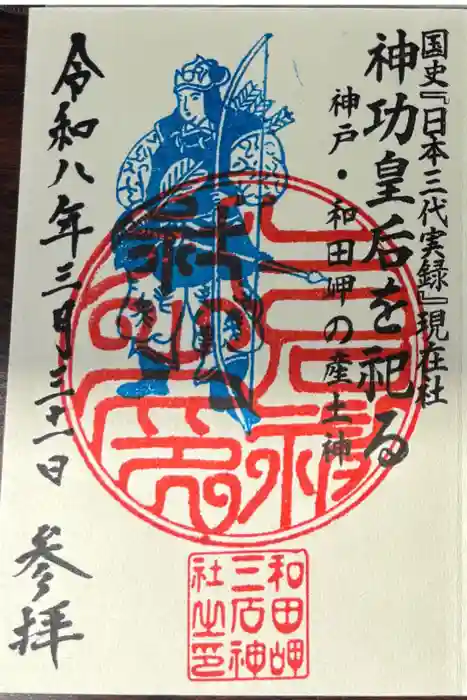 国史『日本三代実録』現在社
神功皇后を祀る
神戸・和田岬の産土神
令和八年三月三十一日 参拝
和田岬
三石神
社之印